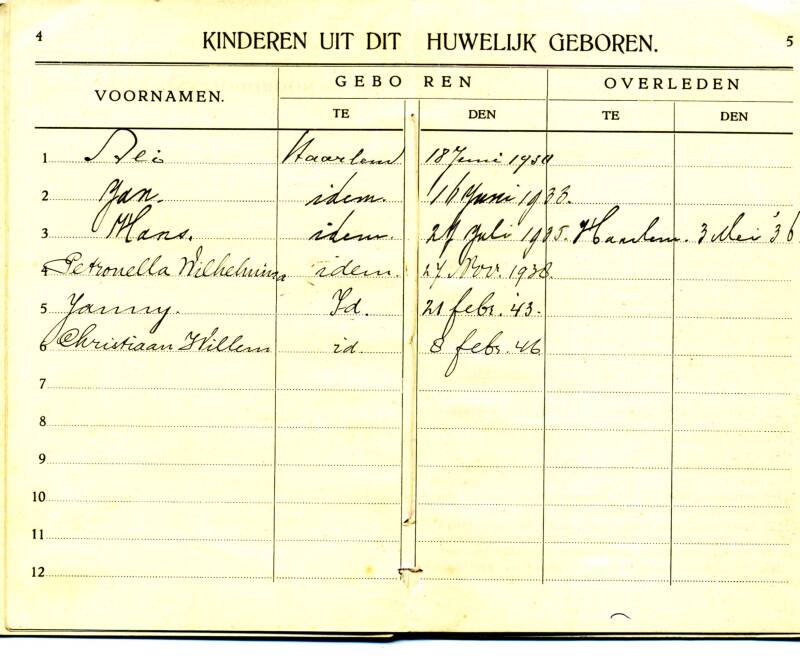 4 KINDEREN UIT DIT HUWELIJK GEBOREN. 5
VOORNAMEN. GEBOREN OVERLEDEN
TE DEN TE DEN
1 Haarlem 18 Juni
2 Jan. idem. 16 Juni 1933.
3 Hans. idem Juli 1935. Haarlem. 3 Mei '36
4 Petronella Wilhelmina idem. 27 Nov. 1938.
5 Janny. Id. 21 febr. '43.
6 Christiaan Willem id. 8 febr. 46
7
8
9
10
11
12